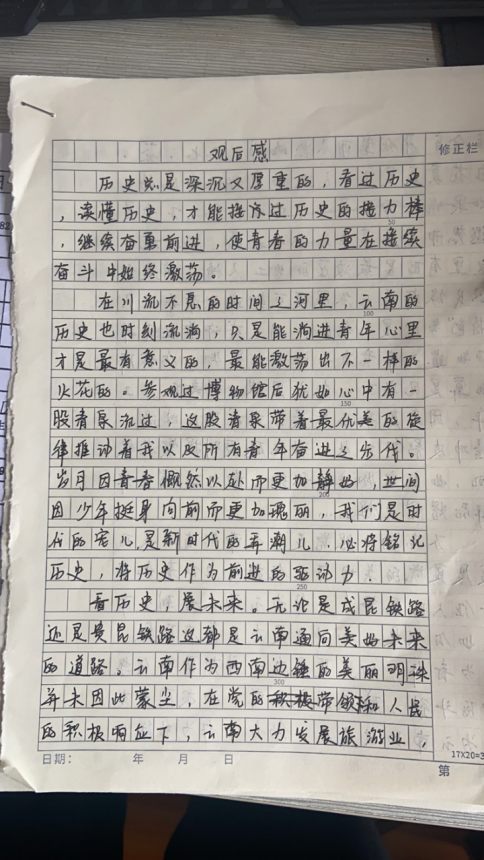 观后感
修正栏
历史总是深沉又厚重的，看过历史
，读懂历史，才能接过历史的接力棒
，继续奋勇前进，使青春的力量在接续
奋斗中始终激荡。
在川流不息的时间之河里，云南的
历史也时刻流淌，只是能淌进青年心里
才是最有意义的，最能激荡出不一样的
火花的。参观过博物馆后犹如心中有一
股青泉流过，这股青泉带着最优美的旋
律推动着我以及所有青年奋进之步伐。
岁月因青春慨然以赴而更加静好，世间
因少年挺身向前而更加瑰丽，我们是时
代的宠儿，是新时代的弄潮儿，必将铭记
历史，将历史作为前进的驱动力．
看历史，展未来。无论是成昆铁路
还是贵昆铁路这都是云南通向美好未来
的道路。云南作为西南边陲的美丽明珠
并未因此蒙尘，在党的积极带领和人民
的积极响应下，云南大力发展旅游业，
日期： 年 月 日
17X20=3
第
50
100
150
200
250
300